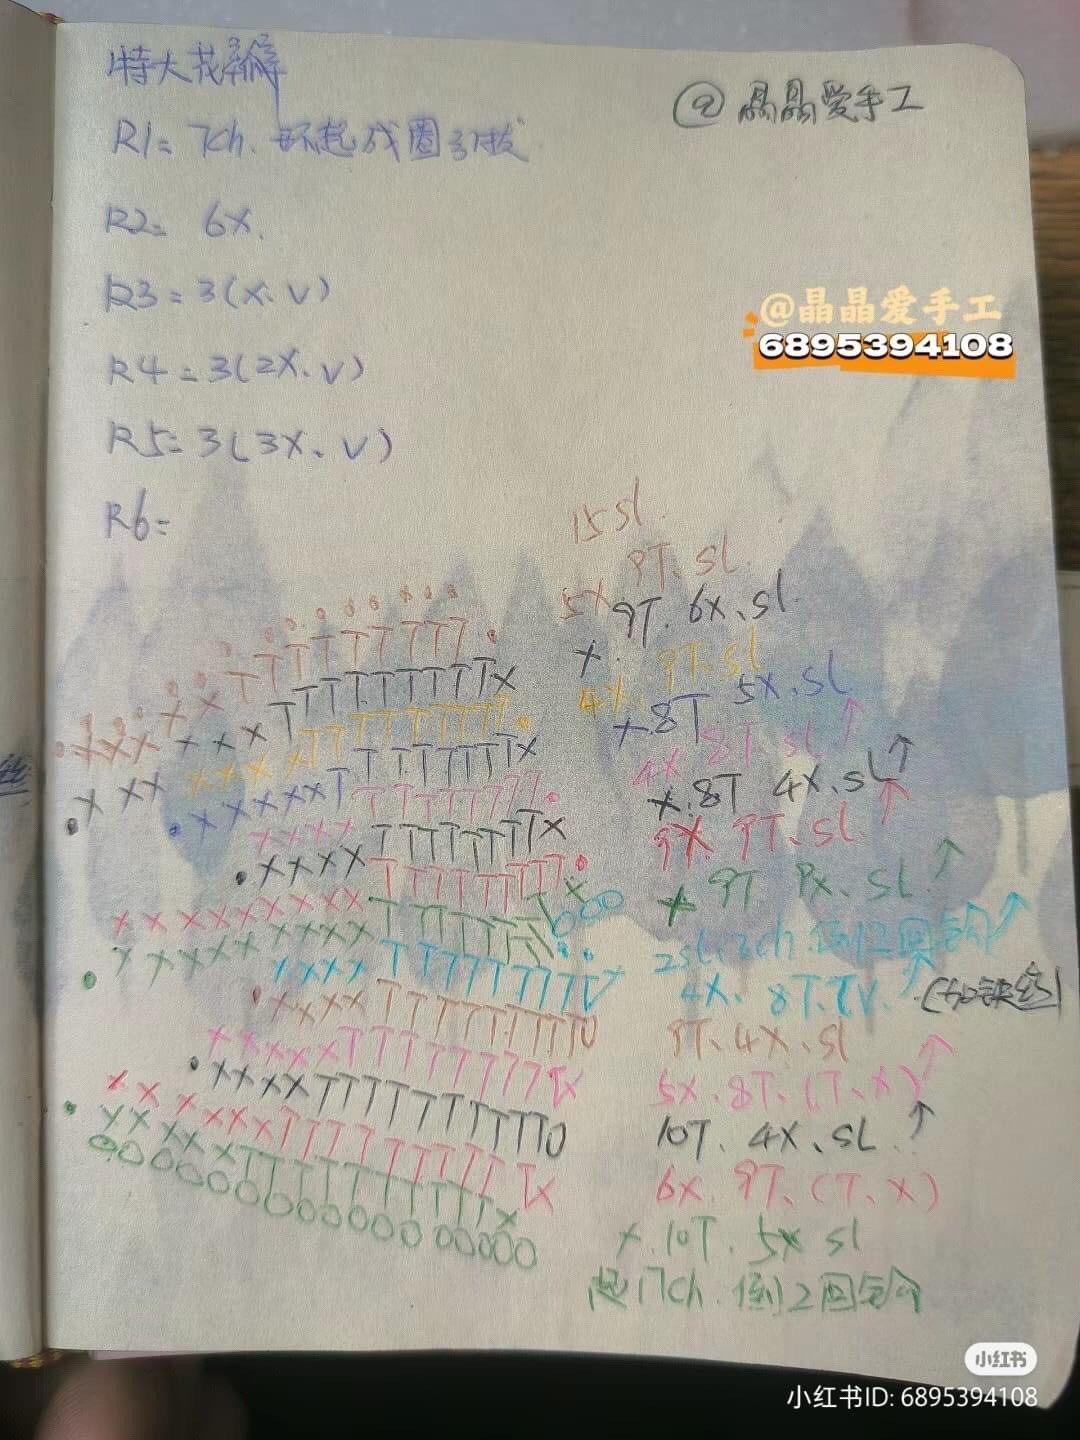 特大花瓣解
@晶晶爱手工
R1= 7ch. 环起成圈引拔
R2= 6X.
R3=3(X、V)
@晶晶爱手工
6895394108
R4=3(2X.V)
R5=3(3X、V)
R6=
15 sl.
9T. sl.
5X
9T. 6X、sl.
X.
9T. sl
4X.
5X.sl
X 8T
4X 8T sl ↑
X.8T 4X.sl ↑
9X. 9T、sl. ↑
X 9T 8X、sl. ↑
2sl.3ch.倒2回钩 ↑
4X. 8T.TV. ↑ (加铁丝)
9T.4X.sl
5X.8T.(T、X) ↑
10T. 4X、sl. ↑
6X. 9T、(T、X)
X.10T. 5X sl
起17ch. 倒2回钩
小红书
小红书ID: 6895394108